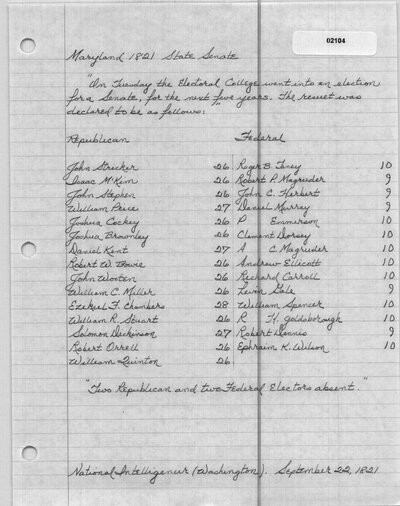 02104
Maryland 1821 State Senate
"On Tuesday the Electoral College went into an election
for a Senate, for the next five years. The result was
declared to be as follows:"
Republican Federal
John Stricker 26 Roger B. Taney 10
Isaac McKim 26 Robert P. Magruder 9
John Stephen 26 John C. Herbert 9
William Price 27 Daniel Murray 9
Joshua Cockey 26 P Emmerson 9
Joshua Brownley 26 Clement Dorsey 10
Daniel Kent 27 A C. Magruder 10
Robert W. Bowie 26 Andrew Ellicott 10
John Wooten 26 Richard Carroll 10
William C. Miller 26 Levin Gale 9
Ezekiel F. Chambers 28 William Spencer 10
William R. Stuart 26 R H. Goldsborough 10
Solomon Dickinson 27 Robert Dennis 9
Robert Orrell 26 Ephraim K. Wilson 10
William Quinton 26
"Two Republican and two Federal Electors absent."
National Intelligencer (Washington). September 22, 1821